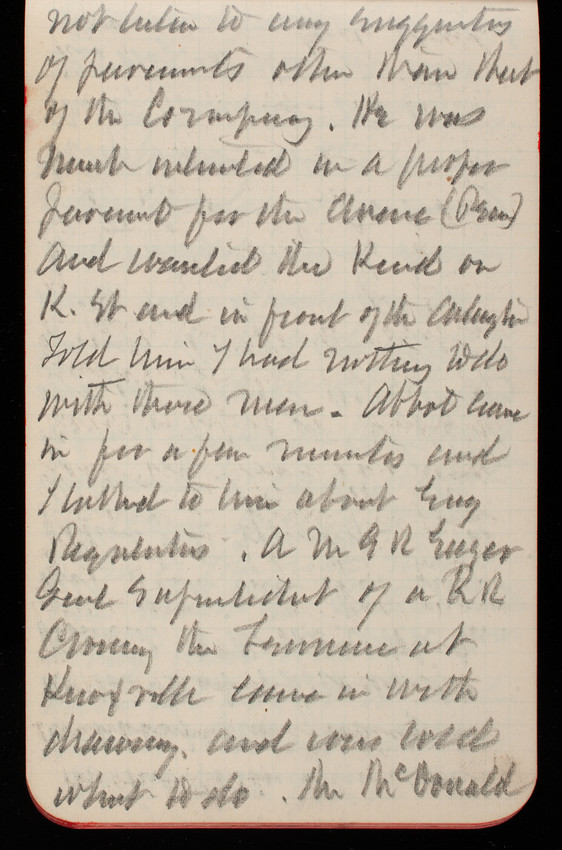 not listen to any suggestions
of pavements other than that
of the Company. He was
much interested in a proper
pavement for the Avenue (Penn)
and wanted the kind on
K. St and in front of the Arlington
Told him I had nothing to do
with those men. Abbot came
in for a few minutes and
I talked to him about Eng
Regulations. A Mr G R Eager
Genl Superintdent of a R R
Crossing the Tennessee at
Knoxville came in with
drawing. and was told
what to do. Mr McDonald